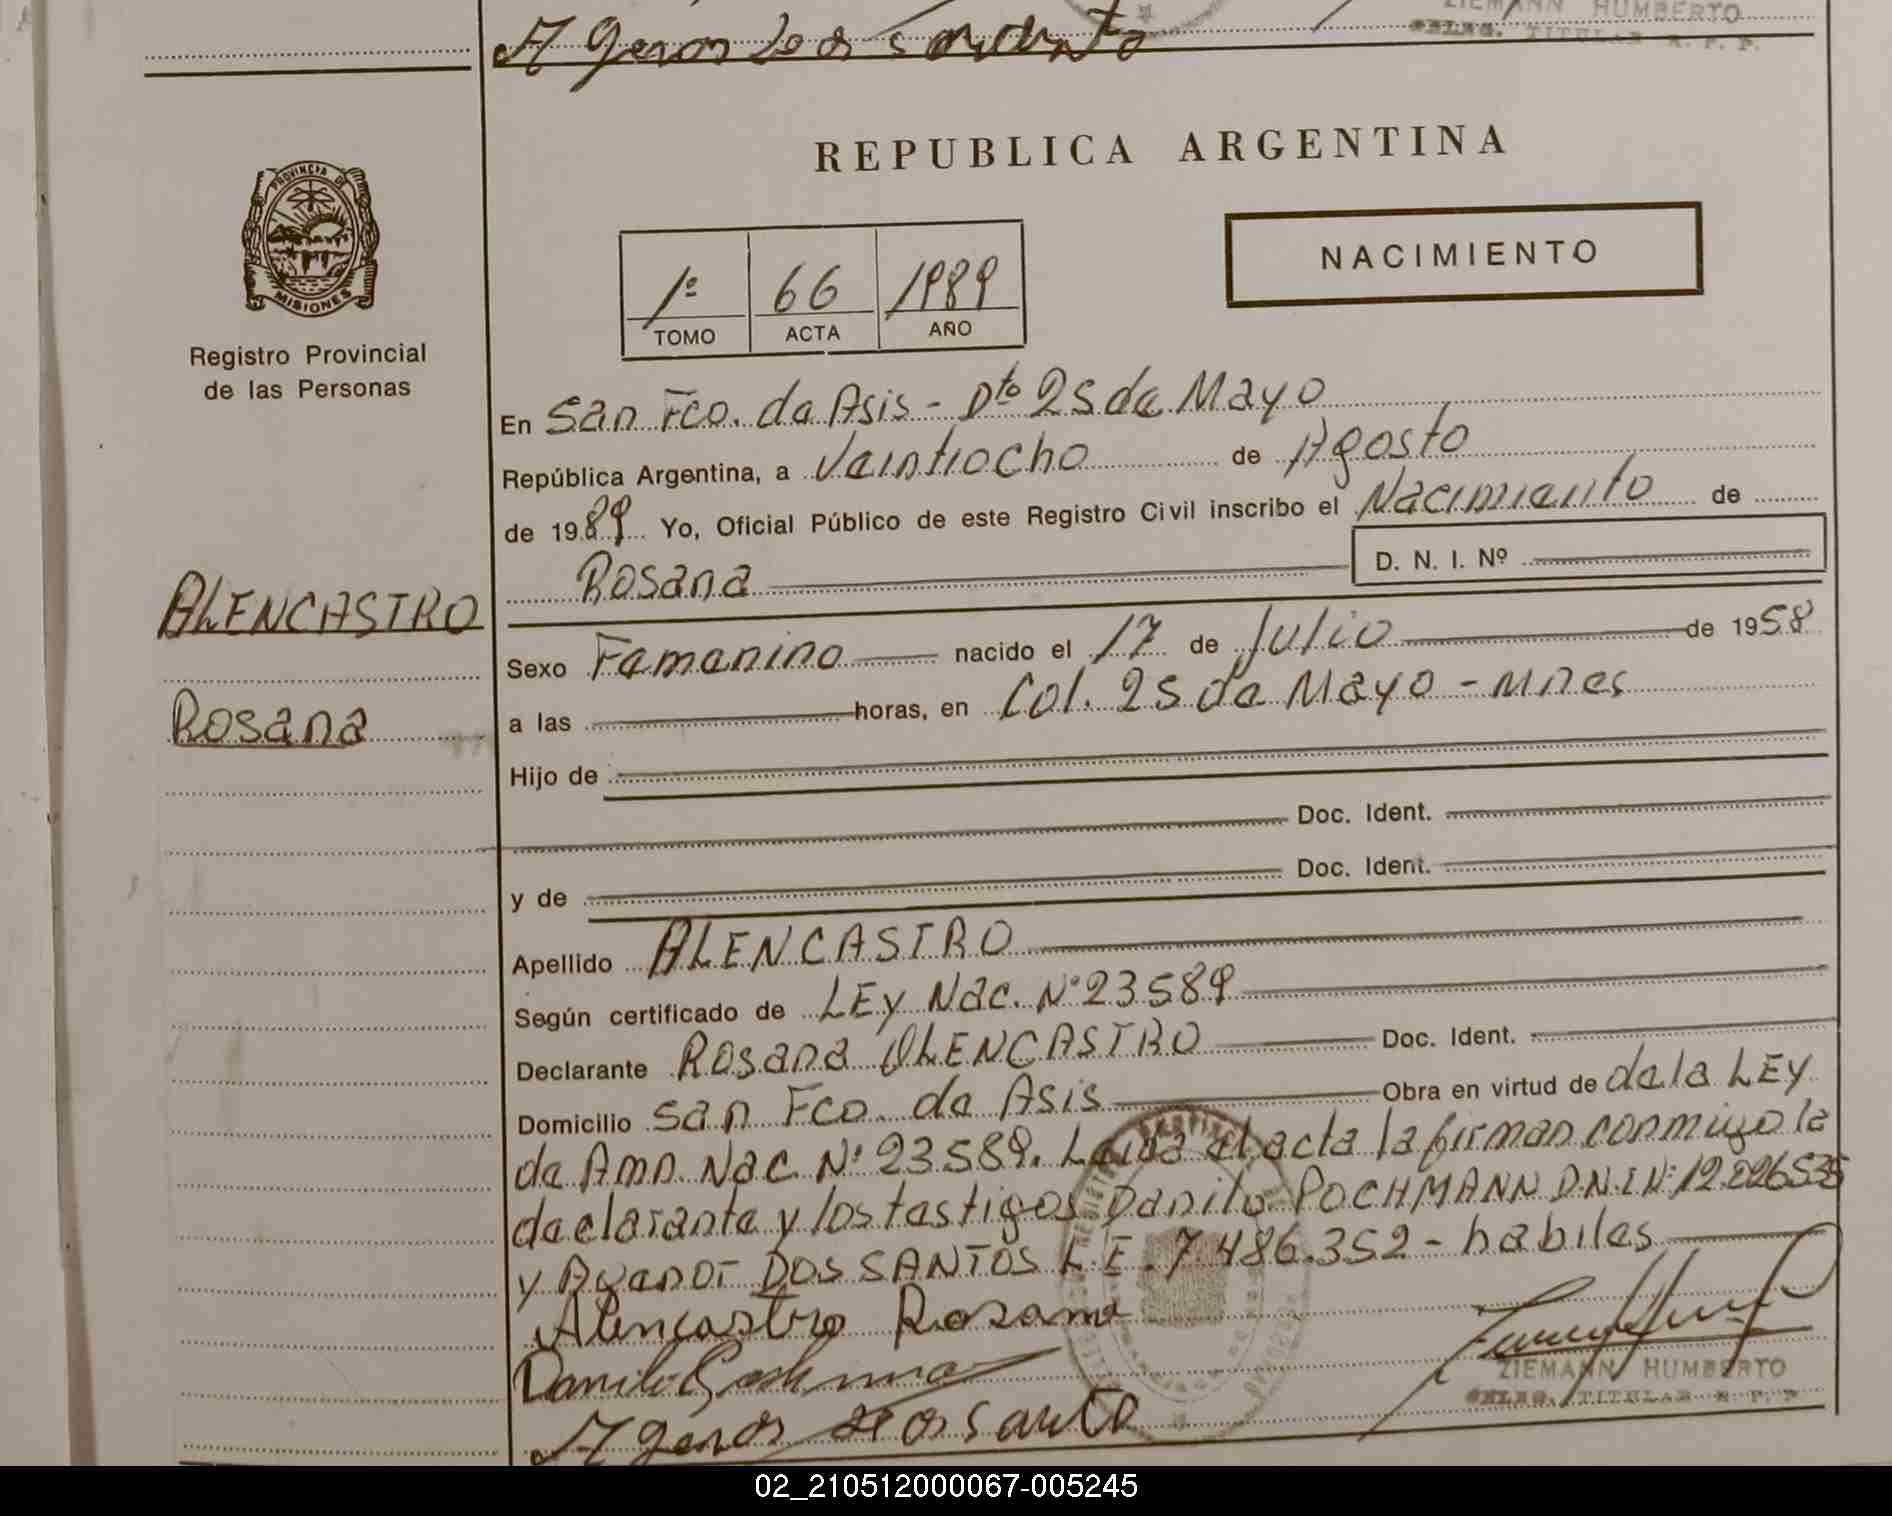 ZIEMANN HUMBERTO
DELEG. TITULAR R. P. P.
Agenor Dos Santo
REPUBLICA ARGENTINA
PROVINCIA DE
MISIONES
Registro Provincial
de las Personas
NACIMIENTO
1º 66 1989
TOMO ACTA AÑO
En San Fco. de Asis - Dto 25 de Mayo
República Argentina, a Veintiocho de Agosto
de 1989 Yo, Oficial Público de este Registro Civil inscribo el Nacimiento de
Rosana D. N. I. Nº
ALENCASTRO
Rosana
Sexo Femenino nacido el 17 de Julio de 1958
a las horas, en Col. 25 de Mayo - Mnes
Hijo de
Doc. Ident.
y de Doc. Ident.
Apellido ALENCASTRO
Según certificado de LEy Nac. Nº 23589
Declarante Rosana ALENCASTRO Doc. Ident.
Domicilio San Fco. de Asis Obra en virtud de de la LEy
de Amn. Nac. Nº 23.589. Leida el acta la firman conmigo la
declarante y los testigos Danilo POCHMANN D.N.I Nº 12.226535
y Agenor DOS SANTOS L.E. 7.486.352 - habiles
Alencastro Rosana
Danilo Pochmann
ZIEMANN HUMBERTO
DELEG. TITULAR R. P. P.
Agenor Dos Santo
02_210512000067-005245